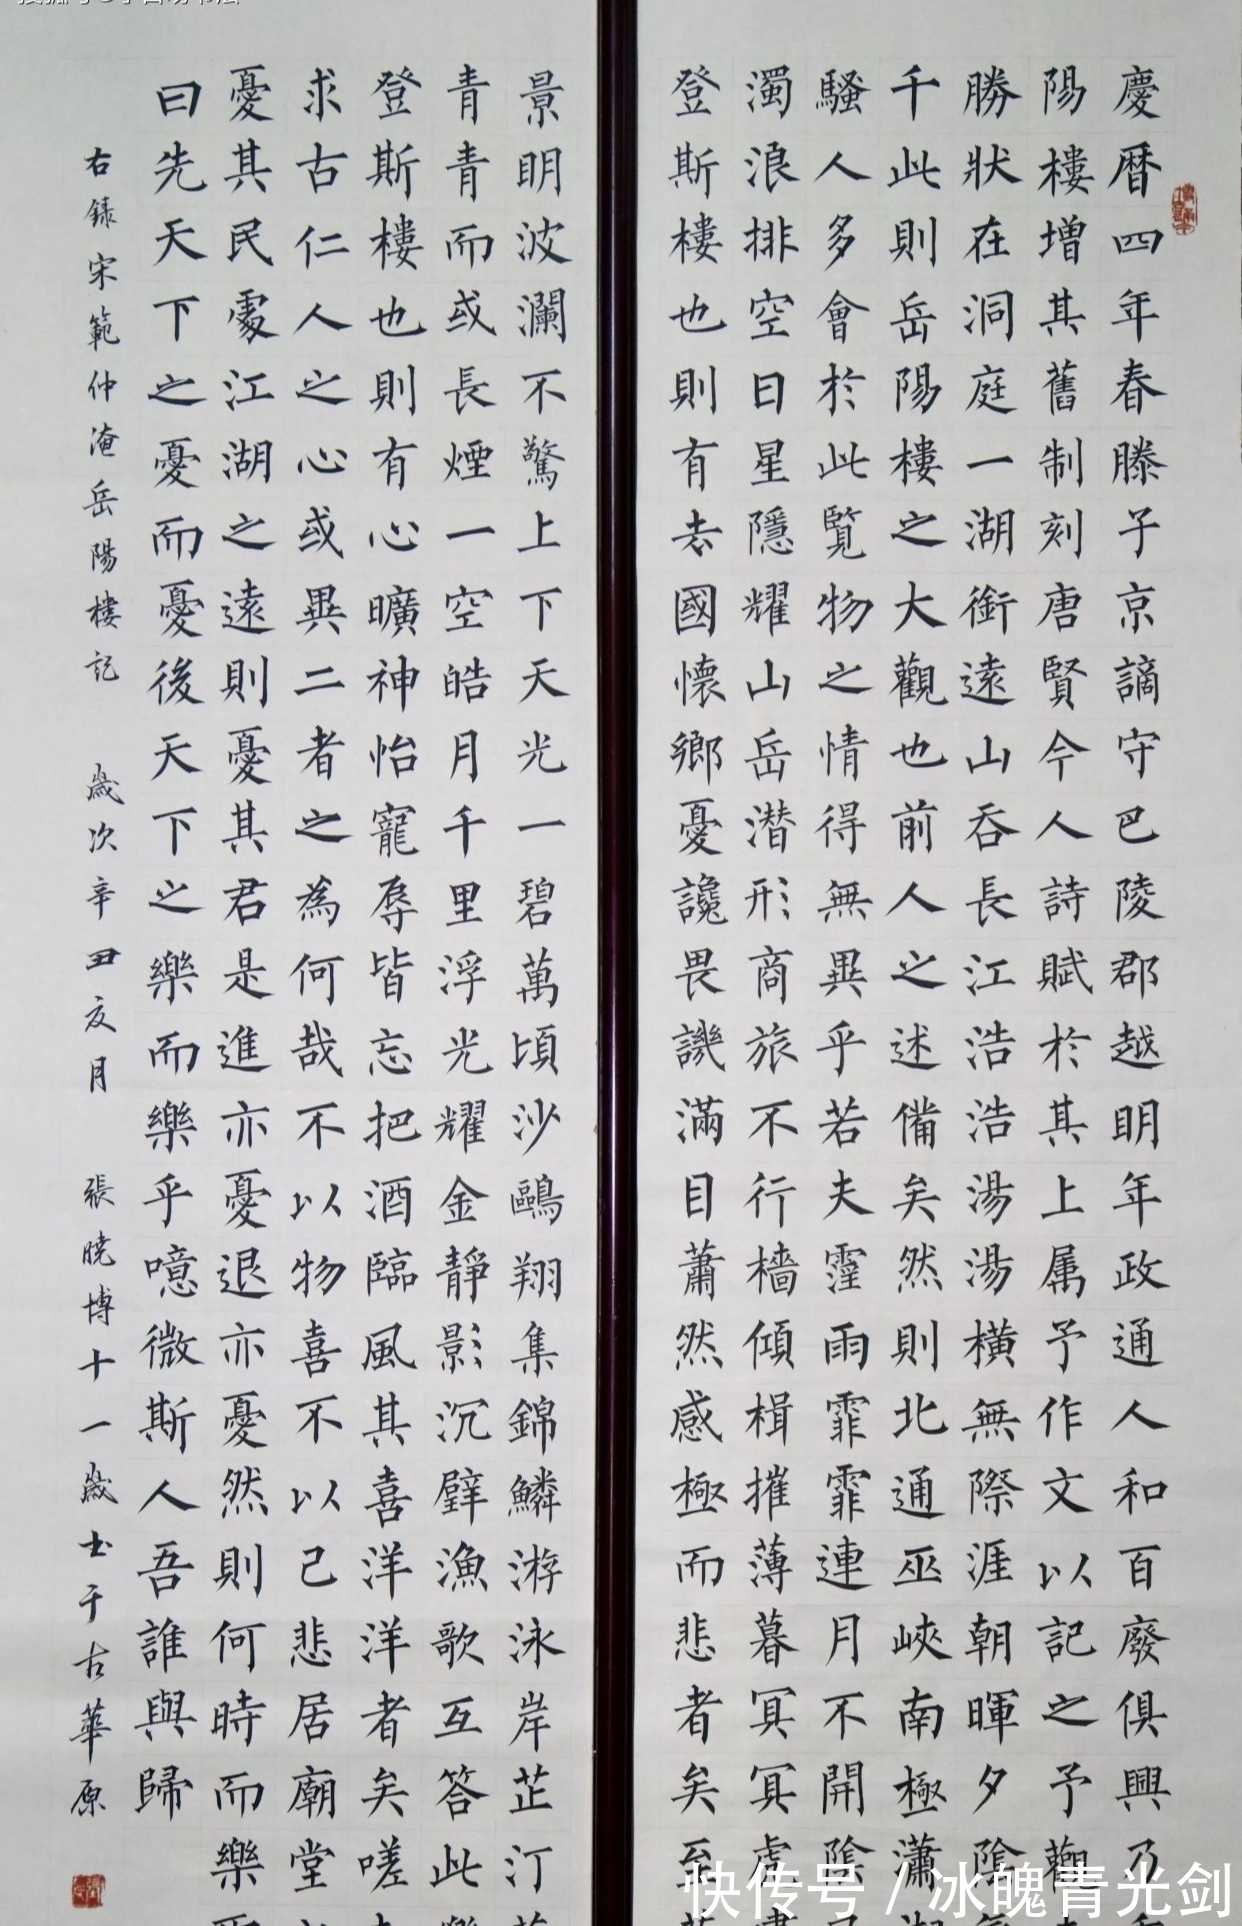 慶曆四年春滕子京謫守巴陵郡越明年政通人和百廢俱興乃
陽樓增其舊制刻唐賢今人詩賦於其上属予作文以記之予觀
勝狀在洞庭一湖銜遠山吞長江浩浩湯湯橫無際涯朝暉夕陰
千此則岳陽樓之大觀也前人之述備矣然則北通巫峽南極瀟
騷人多會於此覽物之情得無異乎若夫霪雨霏霏連月不開陰
濁浪排空日星隱耀山岳潛形商旅不行檣傾楫摧薄暮冥冥虎
登斯樓也則有去國懷鄉憂讒畏譏滿目蕭然感極而悲者矣至
景明波瀾不驚上下天光一碧萬頃沙鷗翔集錦鱗游泳岸芷汀
青青而或長煙一空皓月千里浮光耀金靜影沉璧漁歌互答此
登斯樓也則有心曠神怡寵辱皆忘把酒臨風其喜洋洋者矣嗟
求古仁人之心或異二者之為何哉不以物喜不以己悲居廟堂
憂其民處江湖之遠則憂其君是進亦憂退亦憂然則何時而樂
曰先天下之憂而憂後天下之樂而樂乎噫微斯人吾誰與歸
右錄宋範仲淹岳陽樓記 歲次辛丑夏月 張曉博十一歲士于古華原
快传号/冰魄青光剑